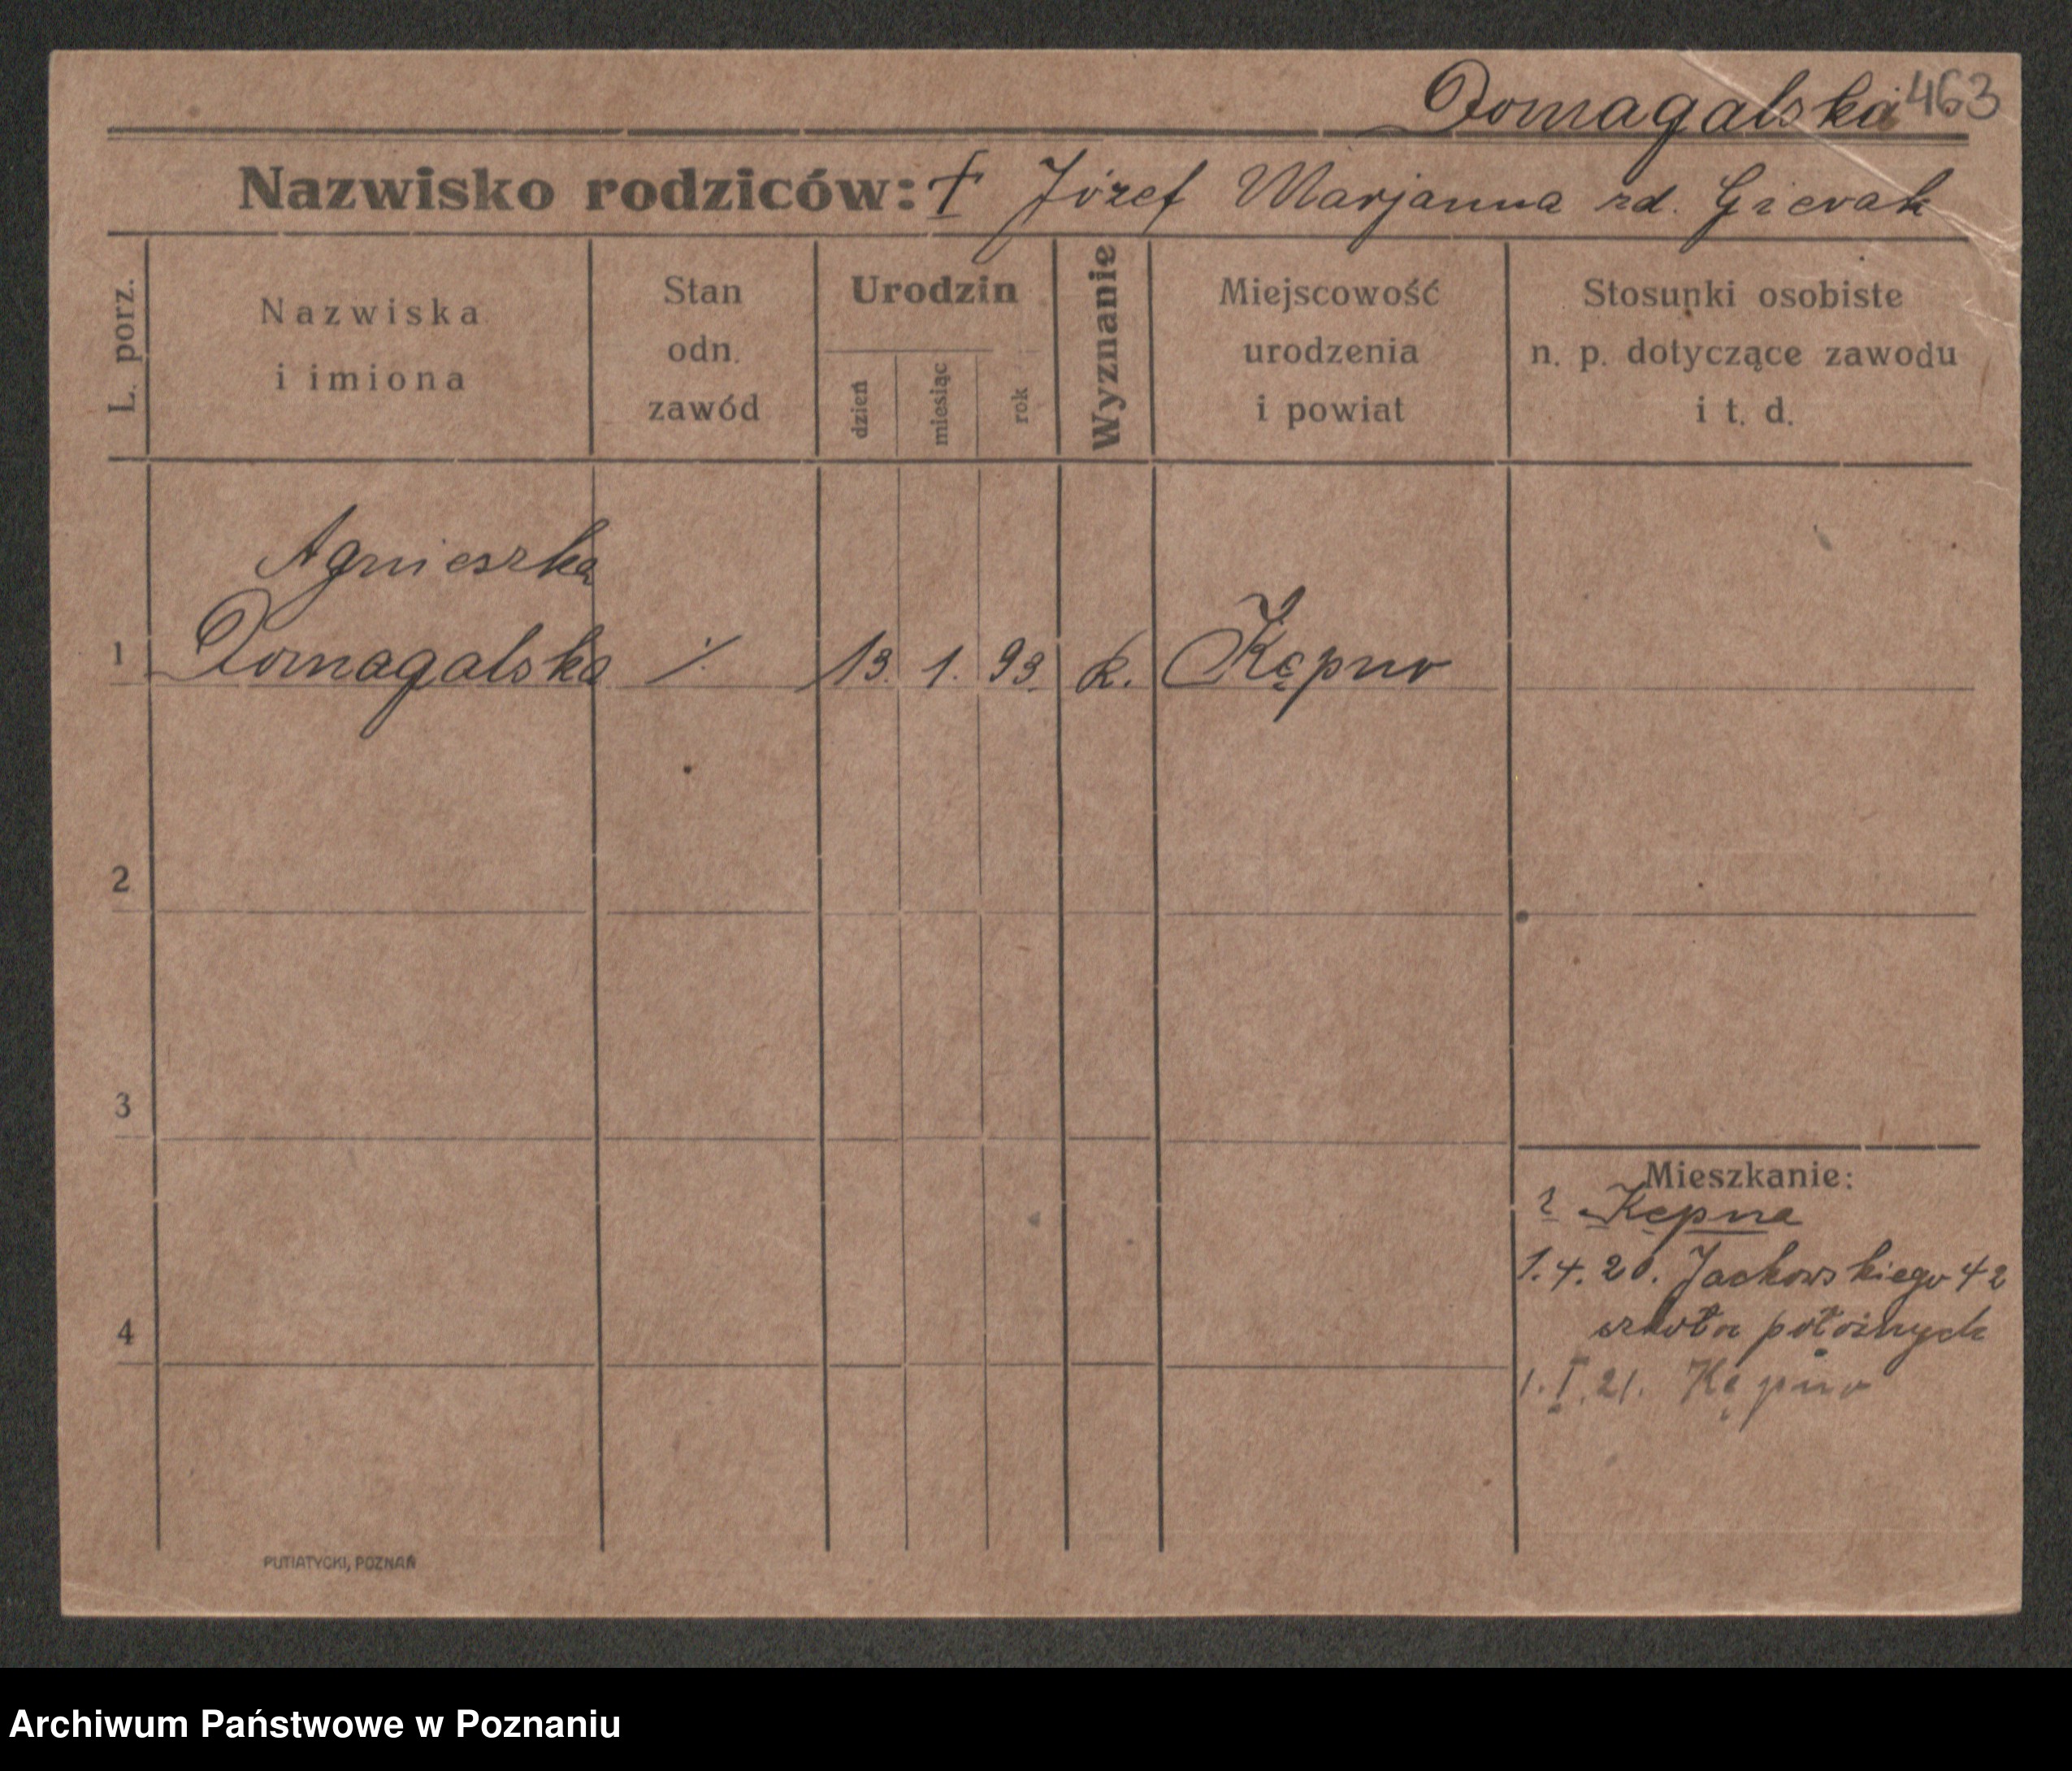 Domagalska 463
Nazwisko rodziców: † Józef Marjanna zd. Gierak
L. porz.
Nazwiska
i imiona
Stan
odn.
zawód
Urodzin
dzień
miesiąc
rok
Wyznanie
Miejscowość
urodzenia
i powiat
Stosunki osobiste
n. p. dotyczące zawodu
i t. d.
Agnieszka
1 Domagalska ./. 13. 1. 93. k. Kępno
2
3
4
Mieszkanie:
z Kępna
1.4.20. Jackowskiego 42
szkoła położnych
1.I.21. Kępno
PUTIATYCKI, POZNAŃ
Archiwum Państwowe w Poznaniu